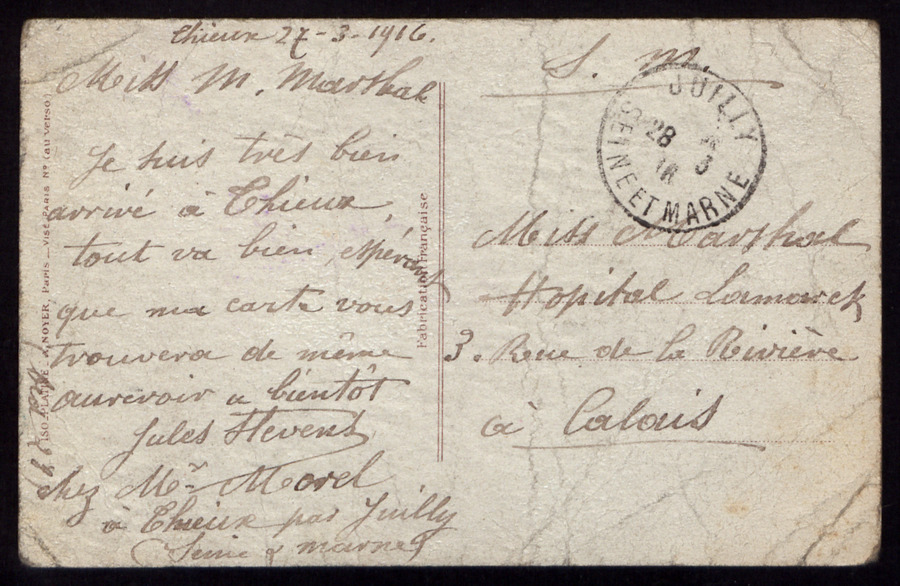 Thieux 27-3-1916.
Miss M. Marshal
Je suis très bien
arrivé à Thieux,
tout va bien, espérant
que ma carte vous
trouvera de même
aurevoir a bientôt
Jules Stevens
chez Mr Morel
à Thieux par Juilly
Seine & marne
NOYER, Paris _ VISÉ PARIS No (au verso)
Fabrication française
S. M.
JUILLY
28 3
16
SEINE ET MARNE
Miss Marshal
Hopital Lamarck
3. Rue de la Rivière
à Calais